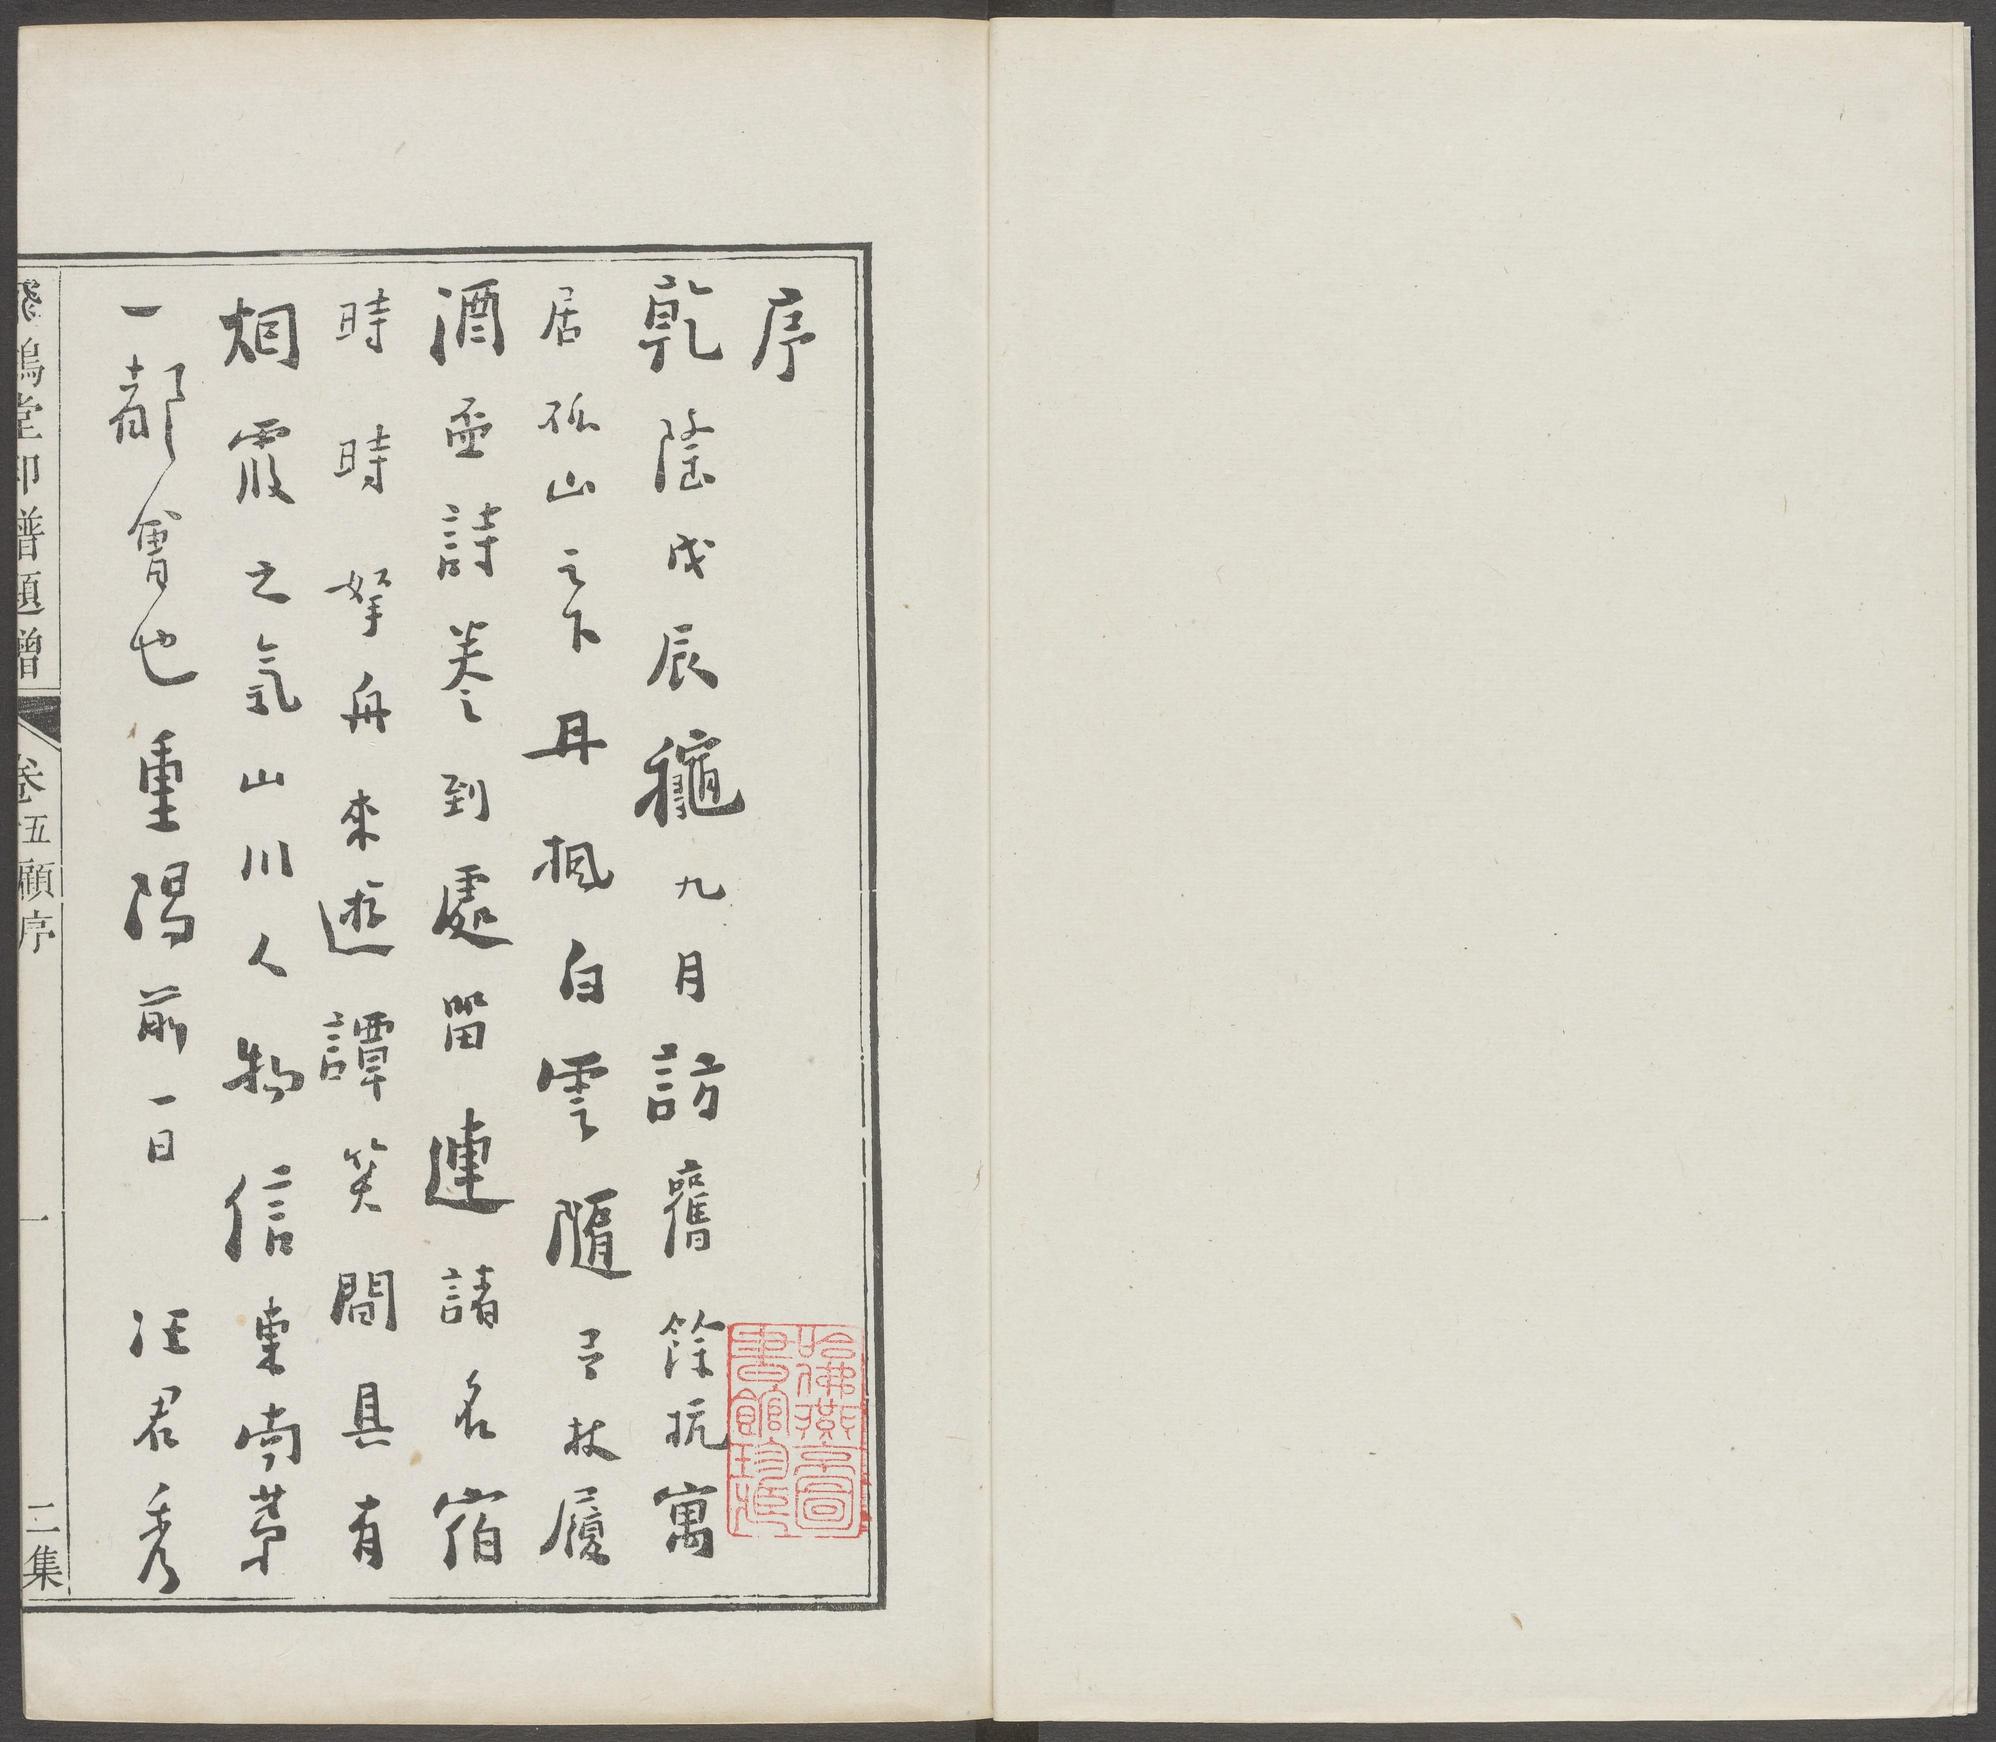 序
乾隆戊辰穐九月訪舊餘杭寓
居孤山之下丹楓白雲隨吾杖履
酒盃詩卷到處留連諸名宿
時時拏舟來遊譚笑間具有
烟霞之氣山川人物信東南第
一都會也重陽前一日 汪君秀
飛鴻堂印譜題贈 卷五顧序 一 二集
哈佛燕京圖
書館珍藏